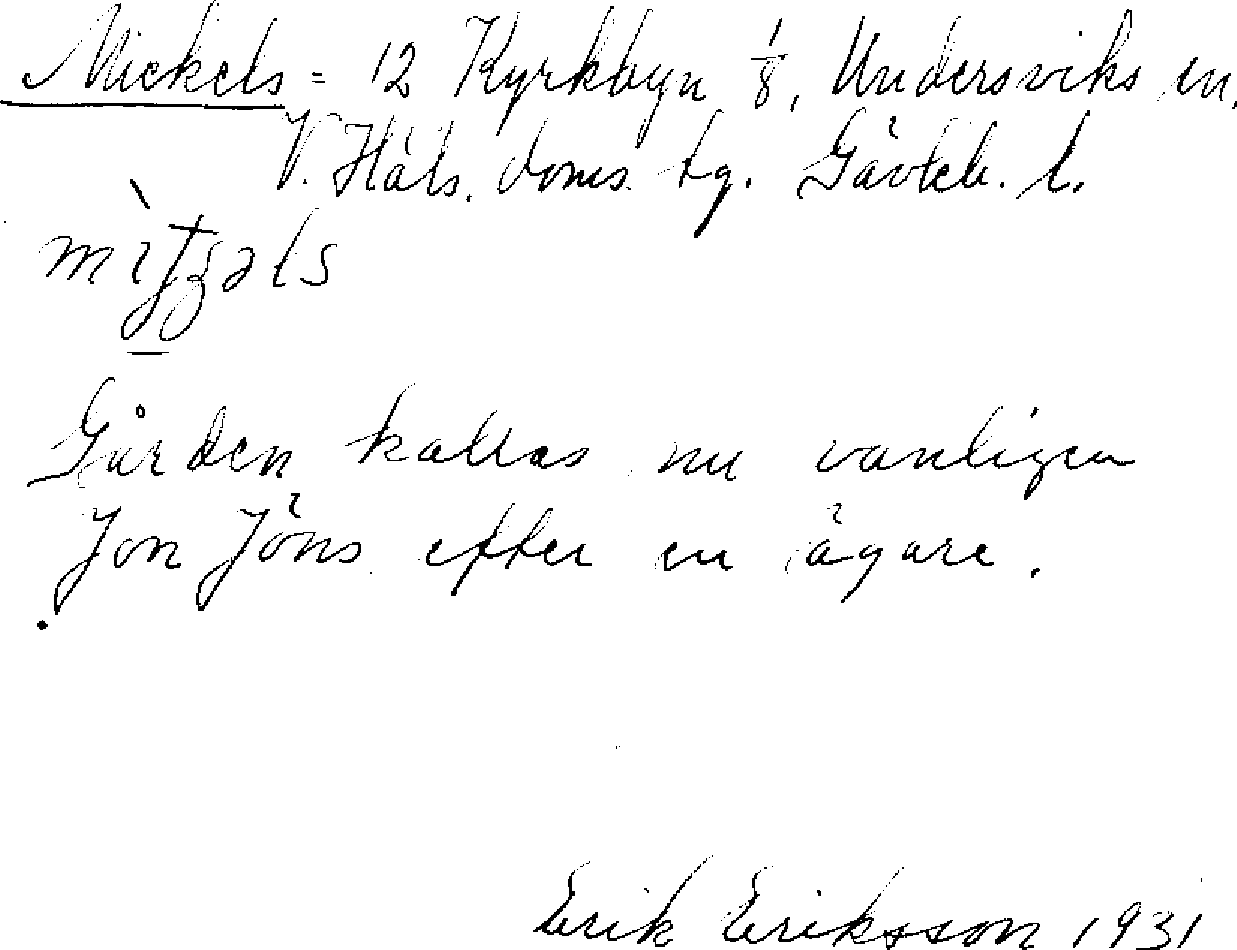 Mickels = 12 Kyrkbyn 1/8, Undersviks sn,
V. Häls. doms. tg. Gävleb. l.
Gården kallas nu vanligen
Jon Jöns efter en ägare.
Erik Eriksson 1931